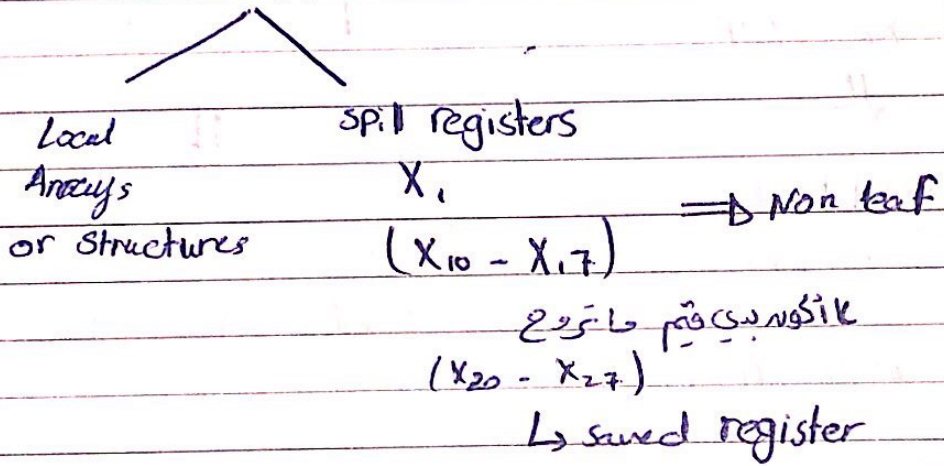 Local
Arrays
or Structures
spill registers
X₁
(X₁₀ - X₁₇)
⇒ Non leaf
لاتكون بدي قيم ما تروح
(X₂₀ - X₂₇)
↳ saved register